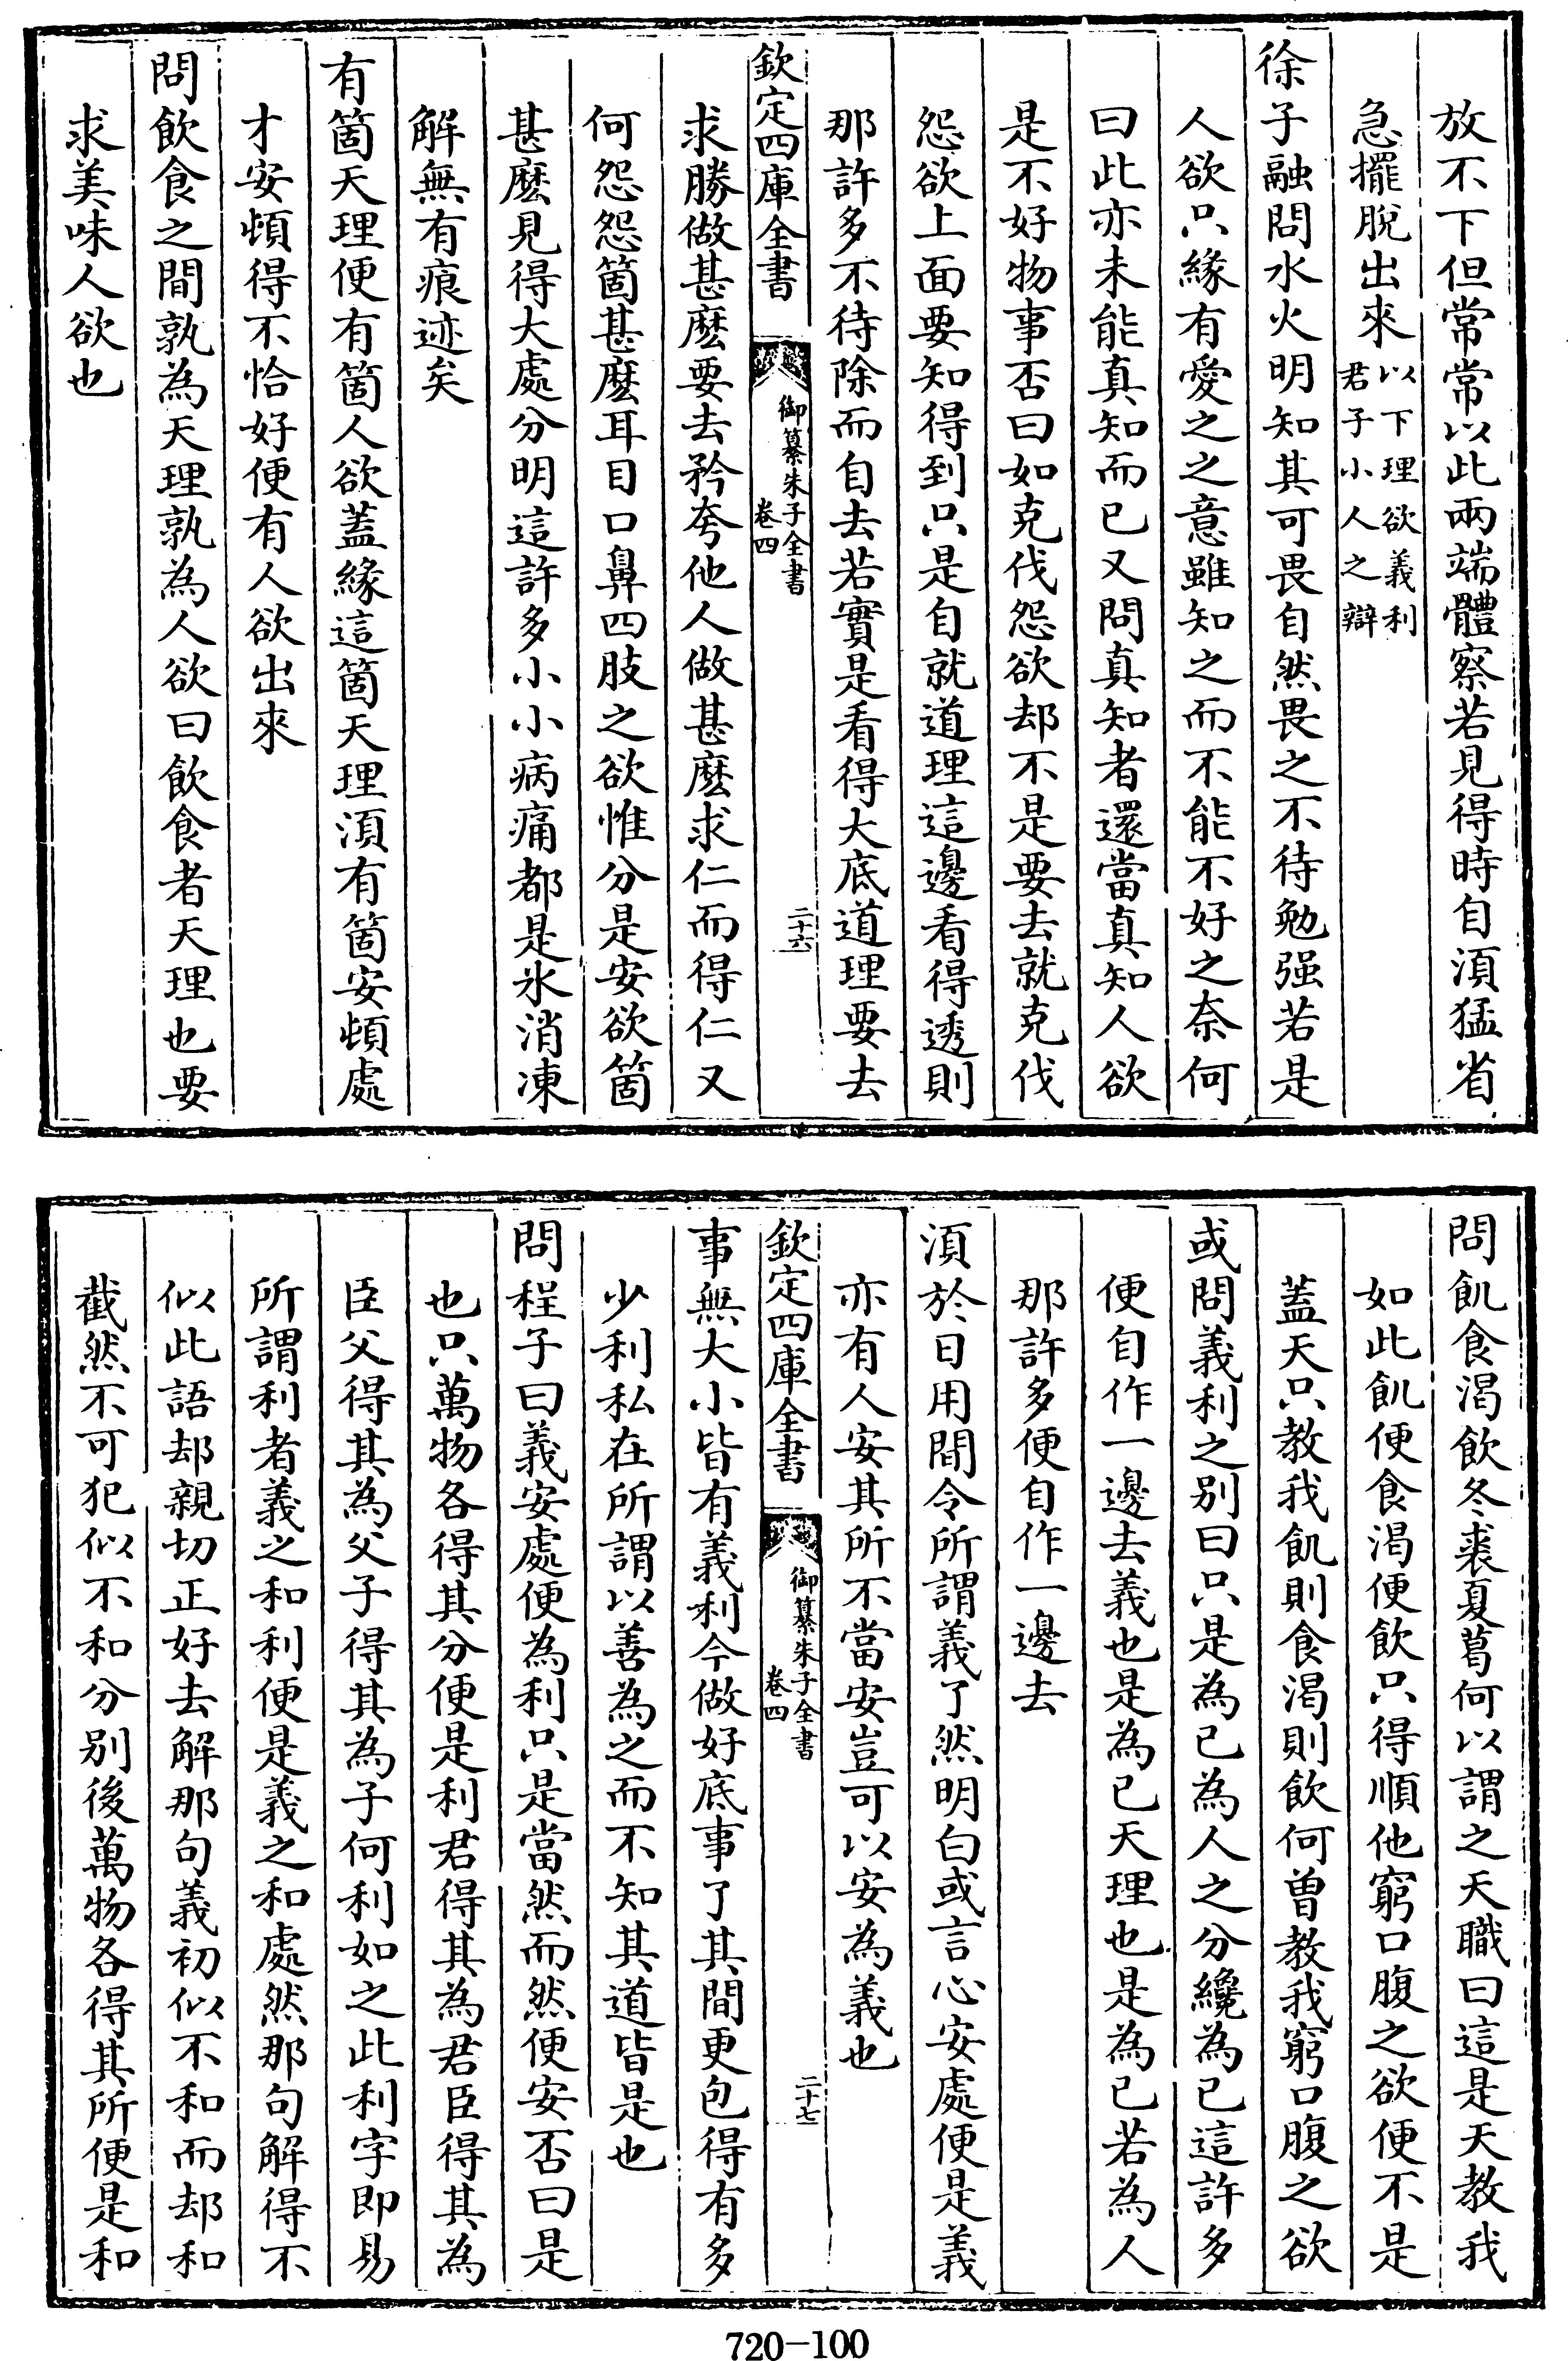 放不下但常常以此兩端體察若見得時自湏猛省
急擺脫出來以下理欲義利君子小人之辯
徐子融問水火明知其可畏自然畏之不待勉强若是
人欲只緣有愛之之意雖知之而不能不好之奈何
曰此亦未能真知而已又問真知者還當真知人欲
是不好物事否曰如克伐怨欲却不是要去就克伐
怨欲上面要知得到只是自就道理這邊看得透則
那許多不待除而自去若實是看得大底道理要去
欽定四庫全書
御纂朱子全書
卷四
二十六
求勝做甚麽要去矜夸他人做甚麽求仁而得仁又
何怨怨箇甚麽耳目口鼻四肢之欲惟分是安欲箇
甚麽見得大處分明這許多小小病痛都是氷消凍
解無有痕迹矣
有箇天理便有箇人欲蓋緣這箇天理湏有箇安頓處
才安頓得不恰好便有人欲出來
問飲食之間孰為天理孰為人欲曰飲食者天理也要
求美味人欲也
問飢食渴飲冬裘夏葛何以謂之天職曰這是天教我
如此飢便食渴便飲只得順他窮口腹之欲便不是
蓋天只教我飢則食渴則飲何曽教我窮口腹之欲
或問義利之别曰只是為已為人之分纔為已這許多
便自作一邊去義也是為已天理也是為已若為人
那許多便自作一邊去
湏於日用間令所謂義了然明白或言心安處便是義
亦有人安其所不當安豈可以安為義也
欽定四庫全書
御纂朱子全書
卷四
二十七
事無大小皆有義利今做好底事了其間更包得有多
少利私在所謂以善為之而不知其道皆是也
問程子曰義安處便為利只是當然而然便安否曰是
也只萬物各得其分便是利君得其為君臣得其為
臣父得其為父子得其為子何利如之此利字即易
所謂利者義之和利便是義之和處然那句解得不
似此語却親切正好去解那句義初似不和而却和
截然不可犯似不和分别後萬物各得其所便是和
720-100